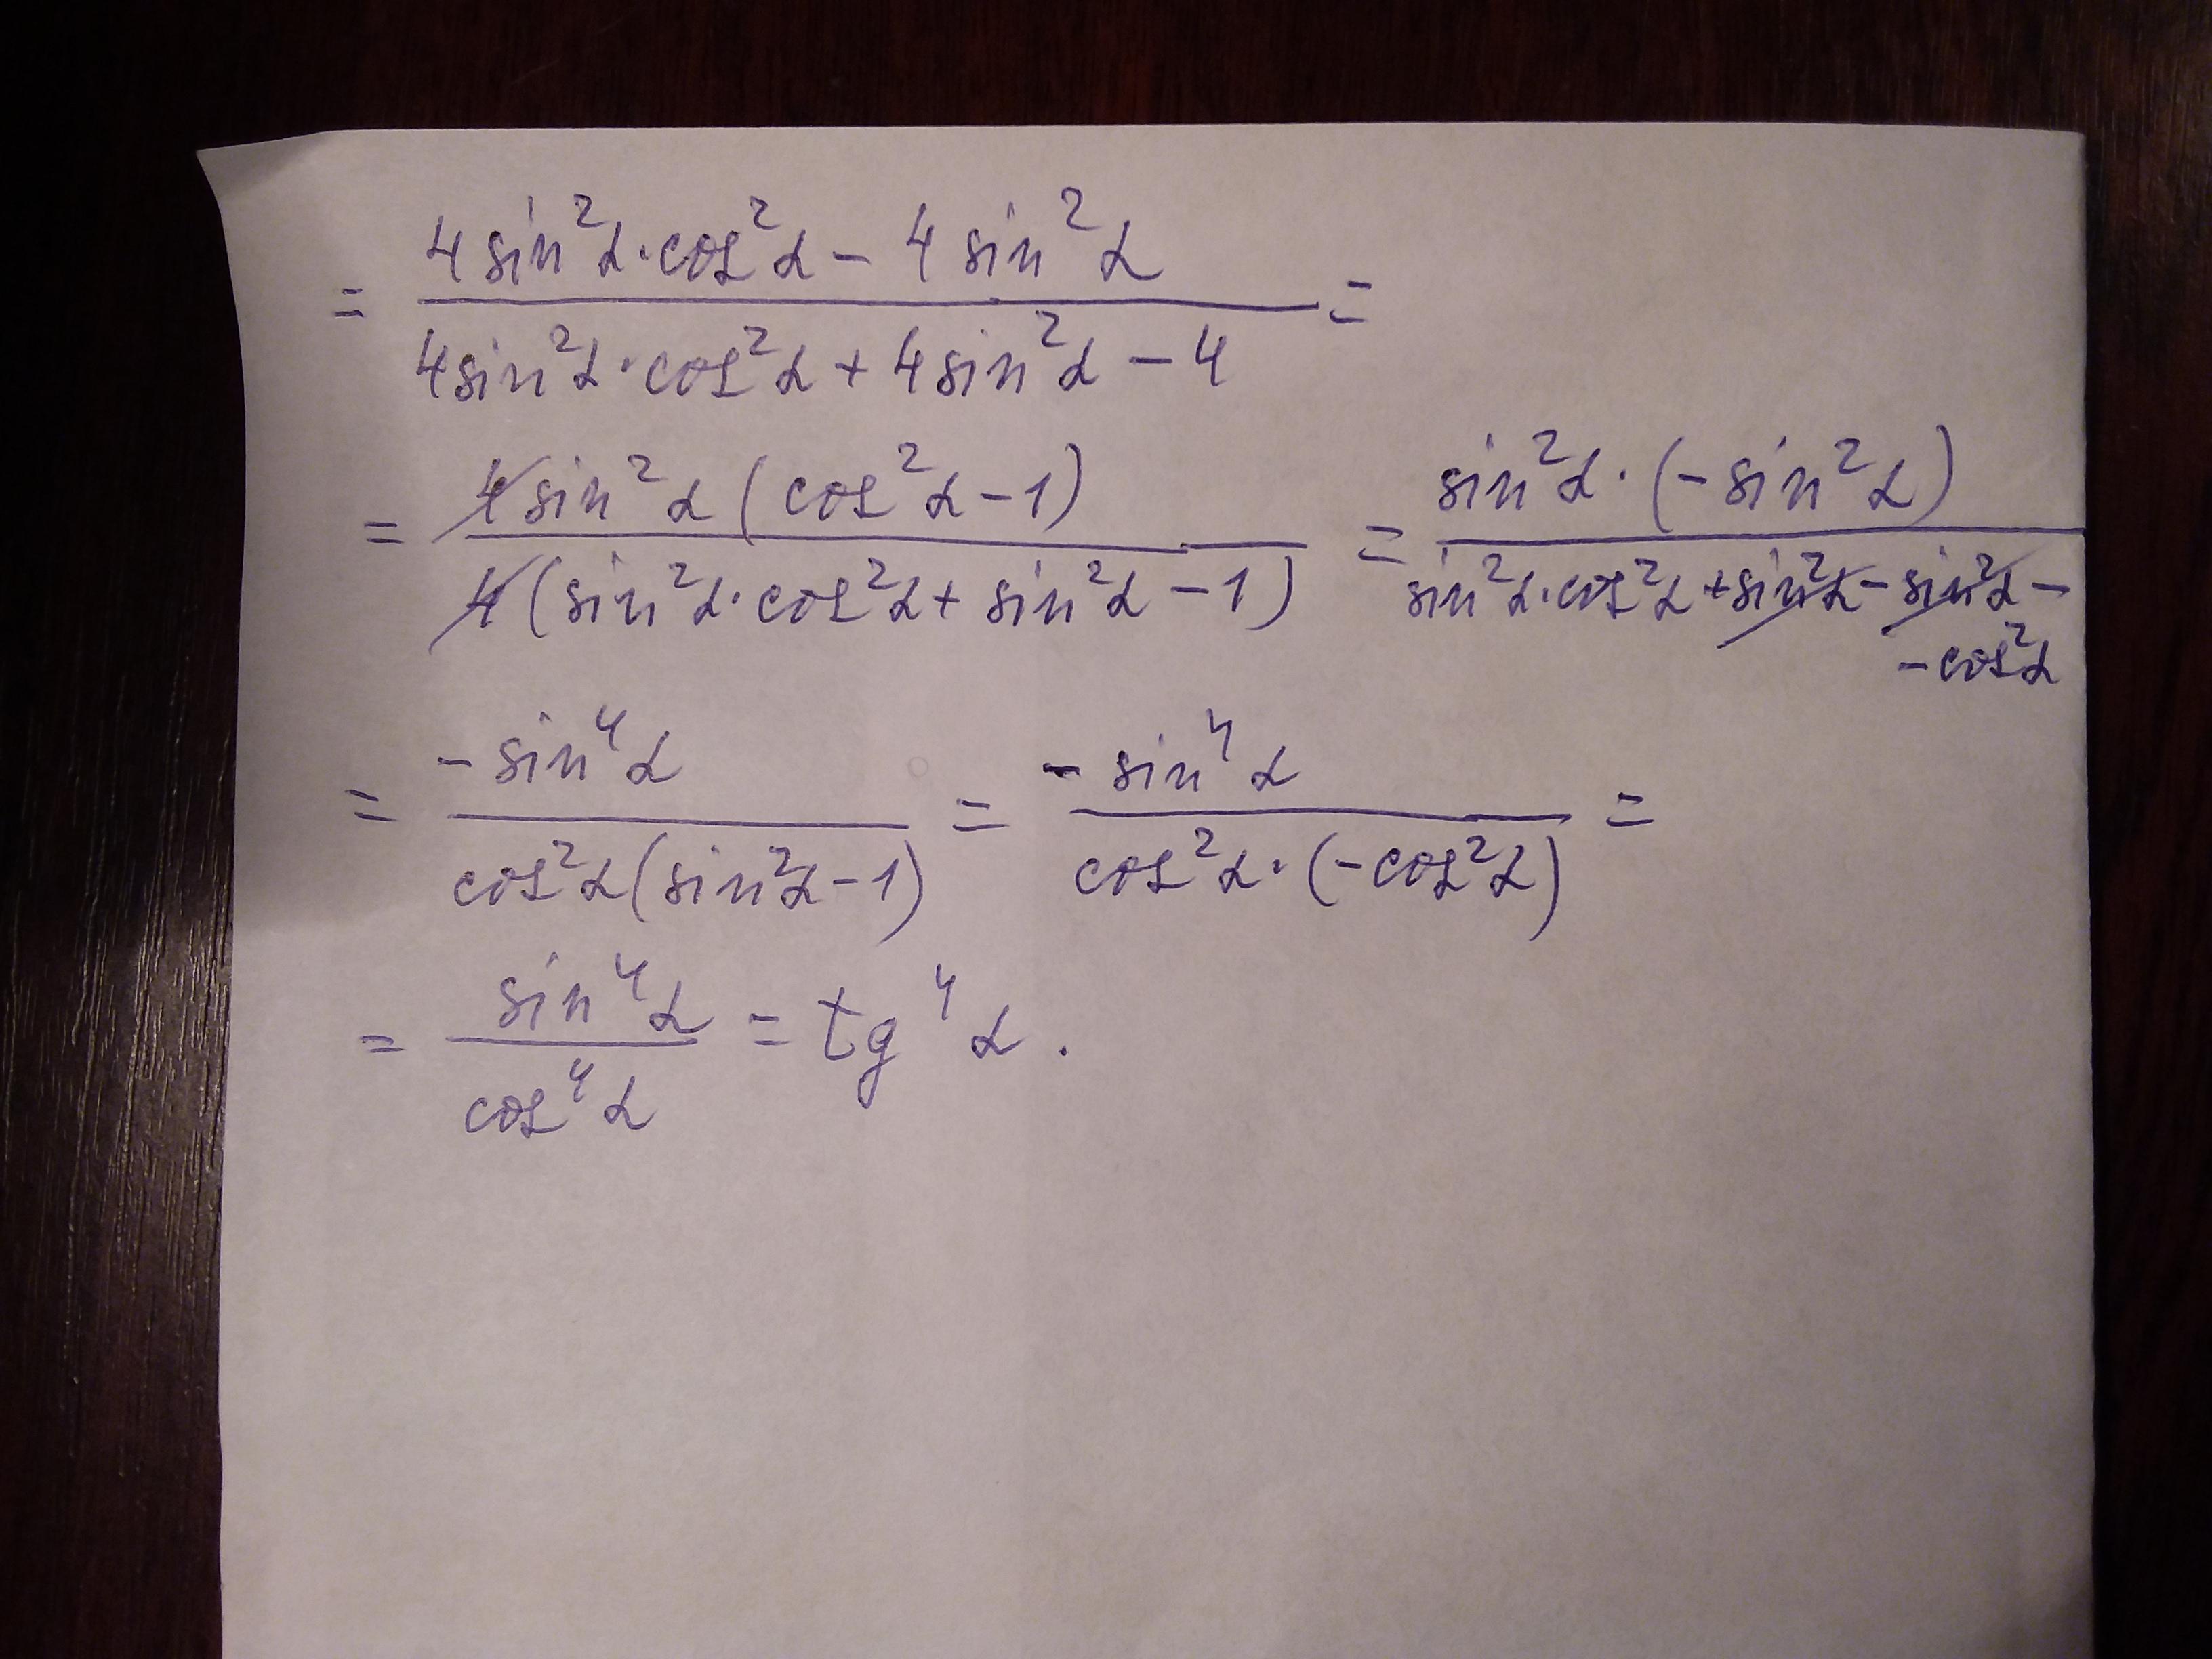 = (4 sin²α · cos²α − 4 sin²α) / (4 sin²α · cos²α + 4 sin²α − 4) =
= 4 sin²α (cos²α − 1) / 4 (sin²α · cos²α + sin²α − 1) = sin²α · (− sin²α) / sin²α · cos²α + sin²α − sin²α − − cos²α
= − sin⁴α / cos²α (sin²α − 1) = − sin⁴α / cos²α · (− cos²α) =
= sin⁴α / cos⁴α = tg⁴α .